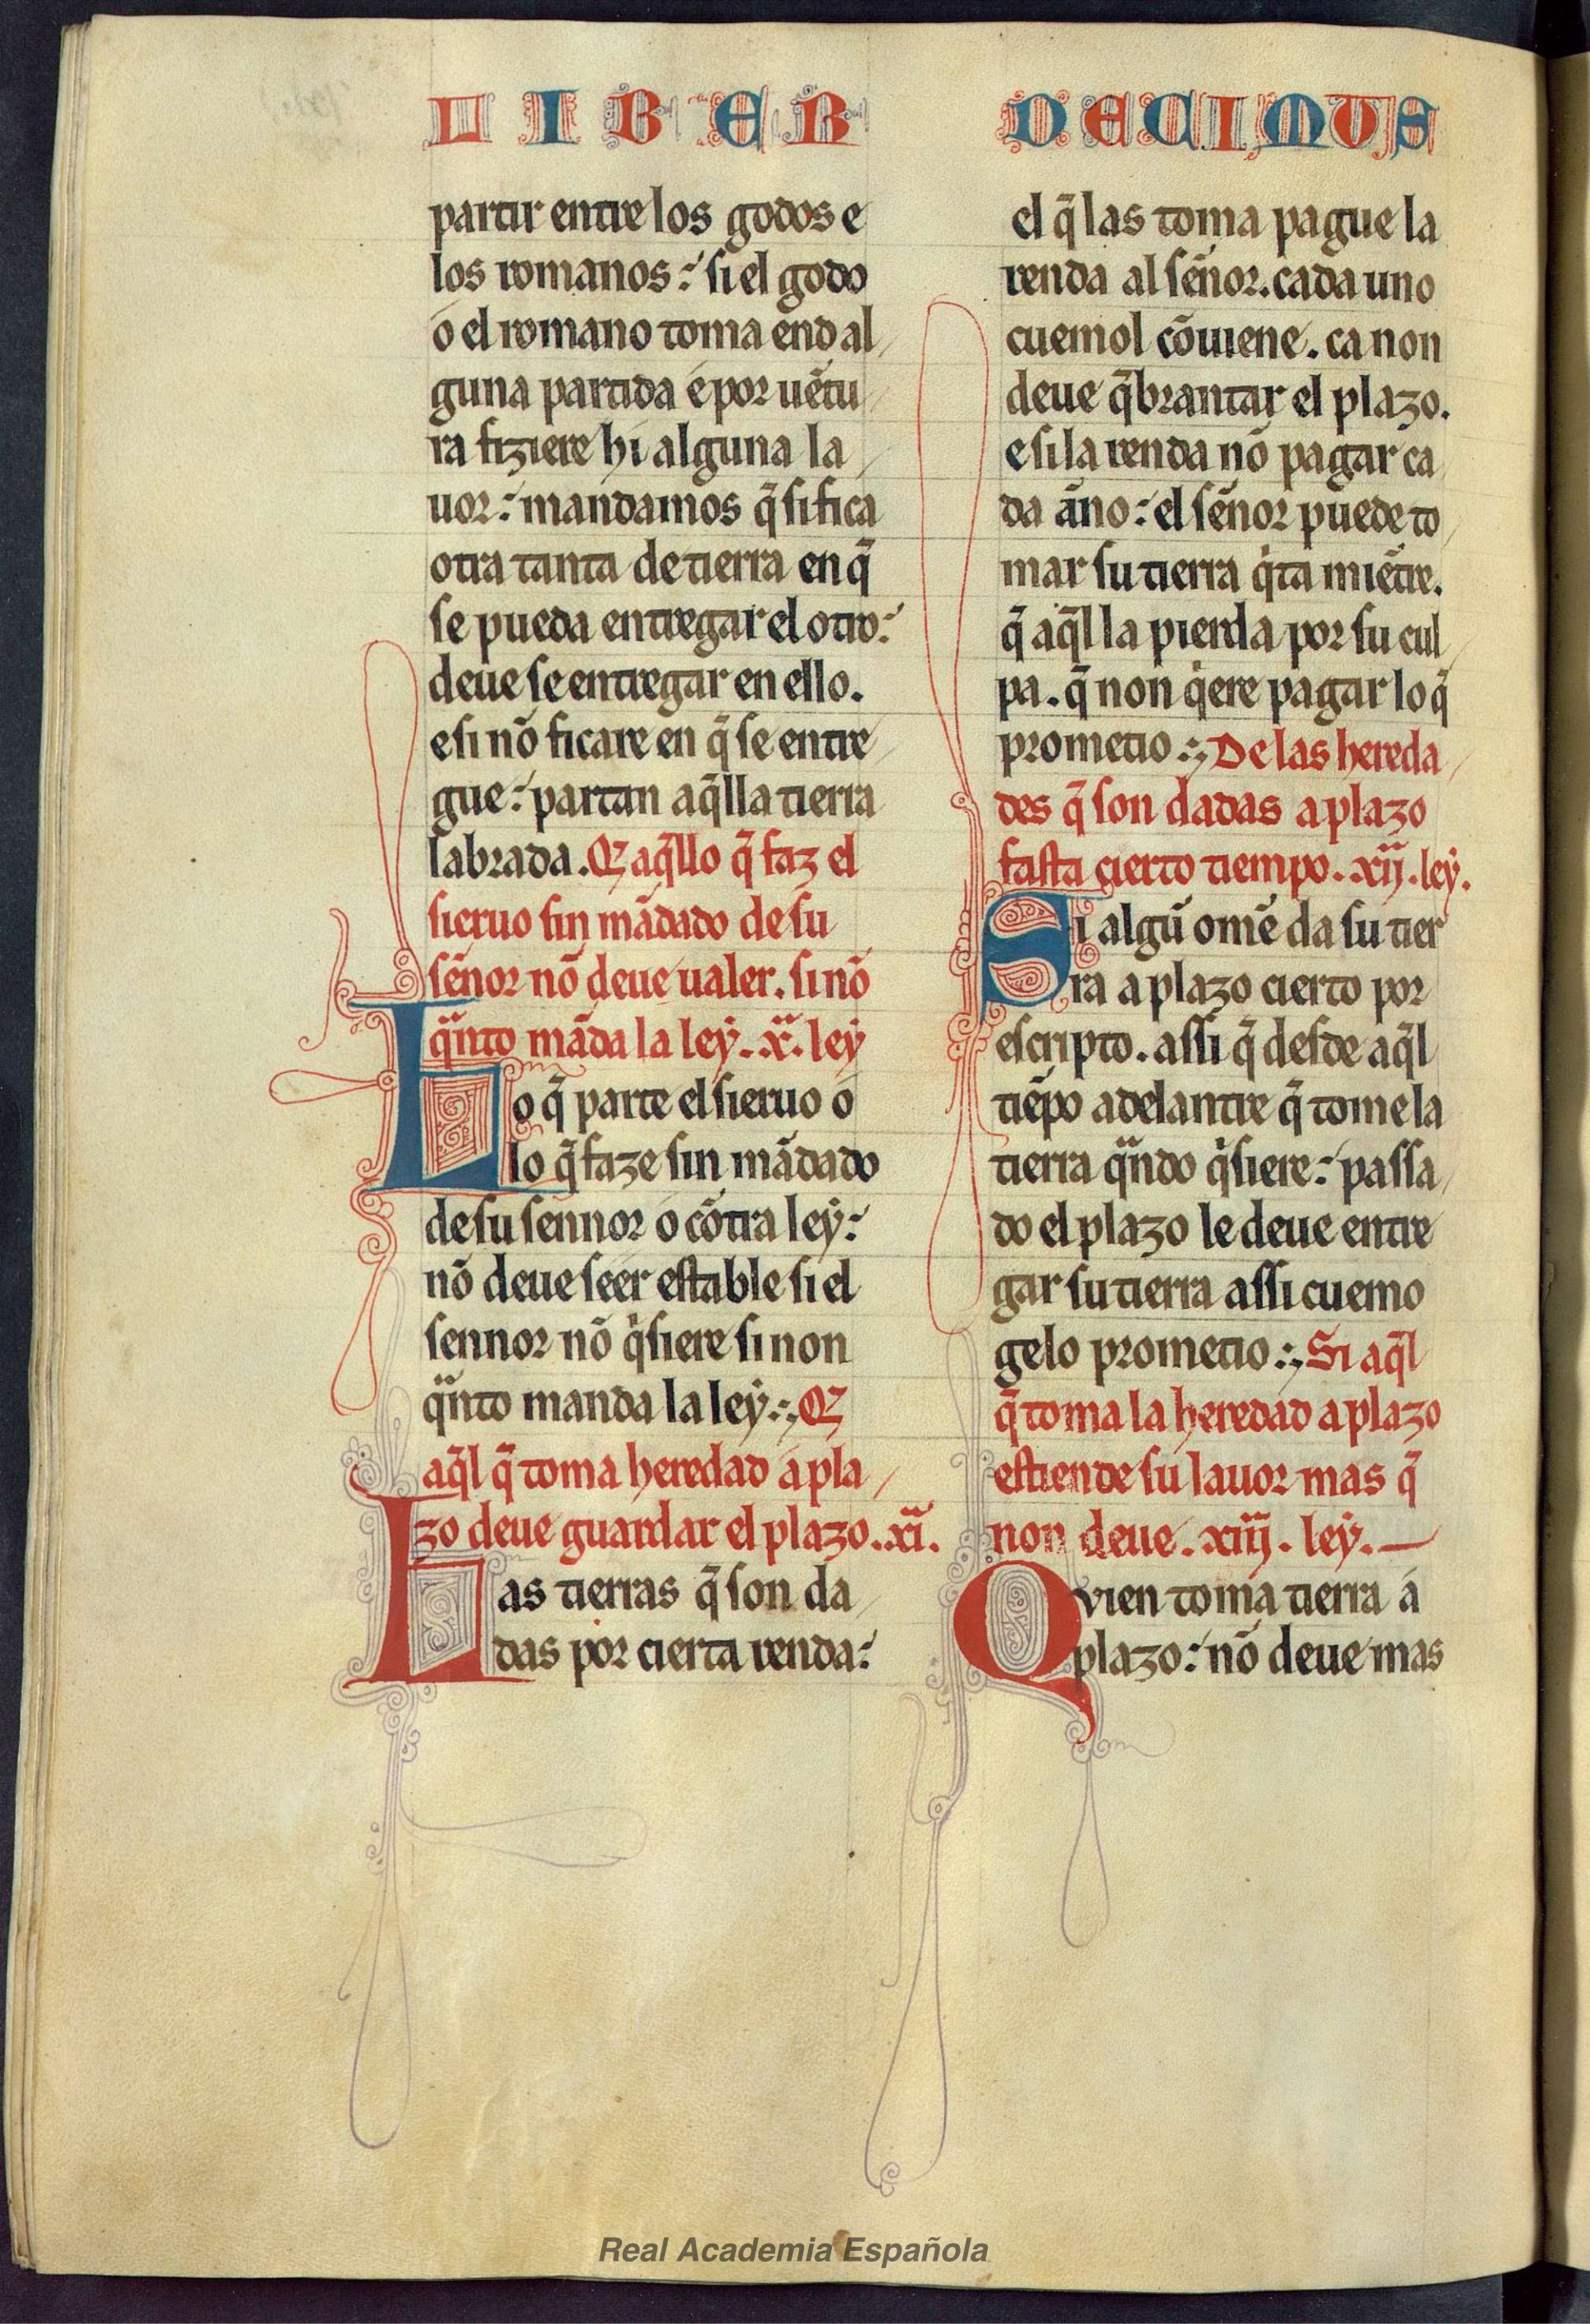 LIBER DECIMUS
partir entre los godos e
los romanos: si el godo
o el romano toma end al
guna partida e por uẽtu
ra fiziere hi alguna la
uor: mandamos q̃ si fica
otra tanta de tierra en q̃
se pueda entregar el otro:
deue se entregar en ello.
e si nõ ficare en q̃ se entre
gue: partan aq̃lla tierra
labrada. Q aq̃llo q̃ faz el
sieruo sin mãdado de su
sẽnor nõ deue ualer. si nõ
qnto mãda la ley. x. ley
Lo q̃ parte el sieruo o
lo q̃ faze sin mãdado
de su sennor o cõtra ley:
nõ deue seer estable si el
sennor nõ qsiere si non
qnto manda la ley. Q
aq̃l q̃ toma heredad a pla
zo deue guardar el plazo. xi.
Las tierras q̃ son da
das por cierta renda:
el q̃ las toma pague la
renda al sẽnor. cada uno
cuemol cõuiene. ca non
deue q̃brantar el plazo.
e si la renda nõ pagar ca
da ãno: el sẽnor puede to
mar su tierra qta miẽtre.
q̃ aq̃l la pierda por su cul
pa. q̃ non qere pagar lo q̃
prometio. De las hereda
des q̃ son dadas a plazo
fasta cierto tiempo. xij. ley.
Si algũ omẽ da su tier
ra a plazo cierto por
escripto. assi q̃ desde aq̃l
tiẽpo adelantre q̃ tome la
tierra qndo qsiere: passa
do el plazo le deue entre
gar su tierra assi cuemo
gelo prometio. Si aq̃l
q̃ toma la heredad a plazo
estiende su lauor mas q̃
non deue. xiij. ley.
Qvien toma tierra a
plazo: nõ deue mas
Real Academia Española